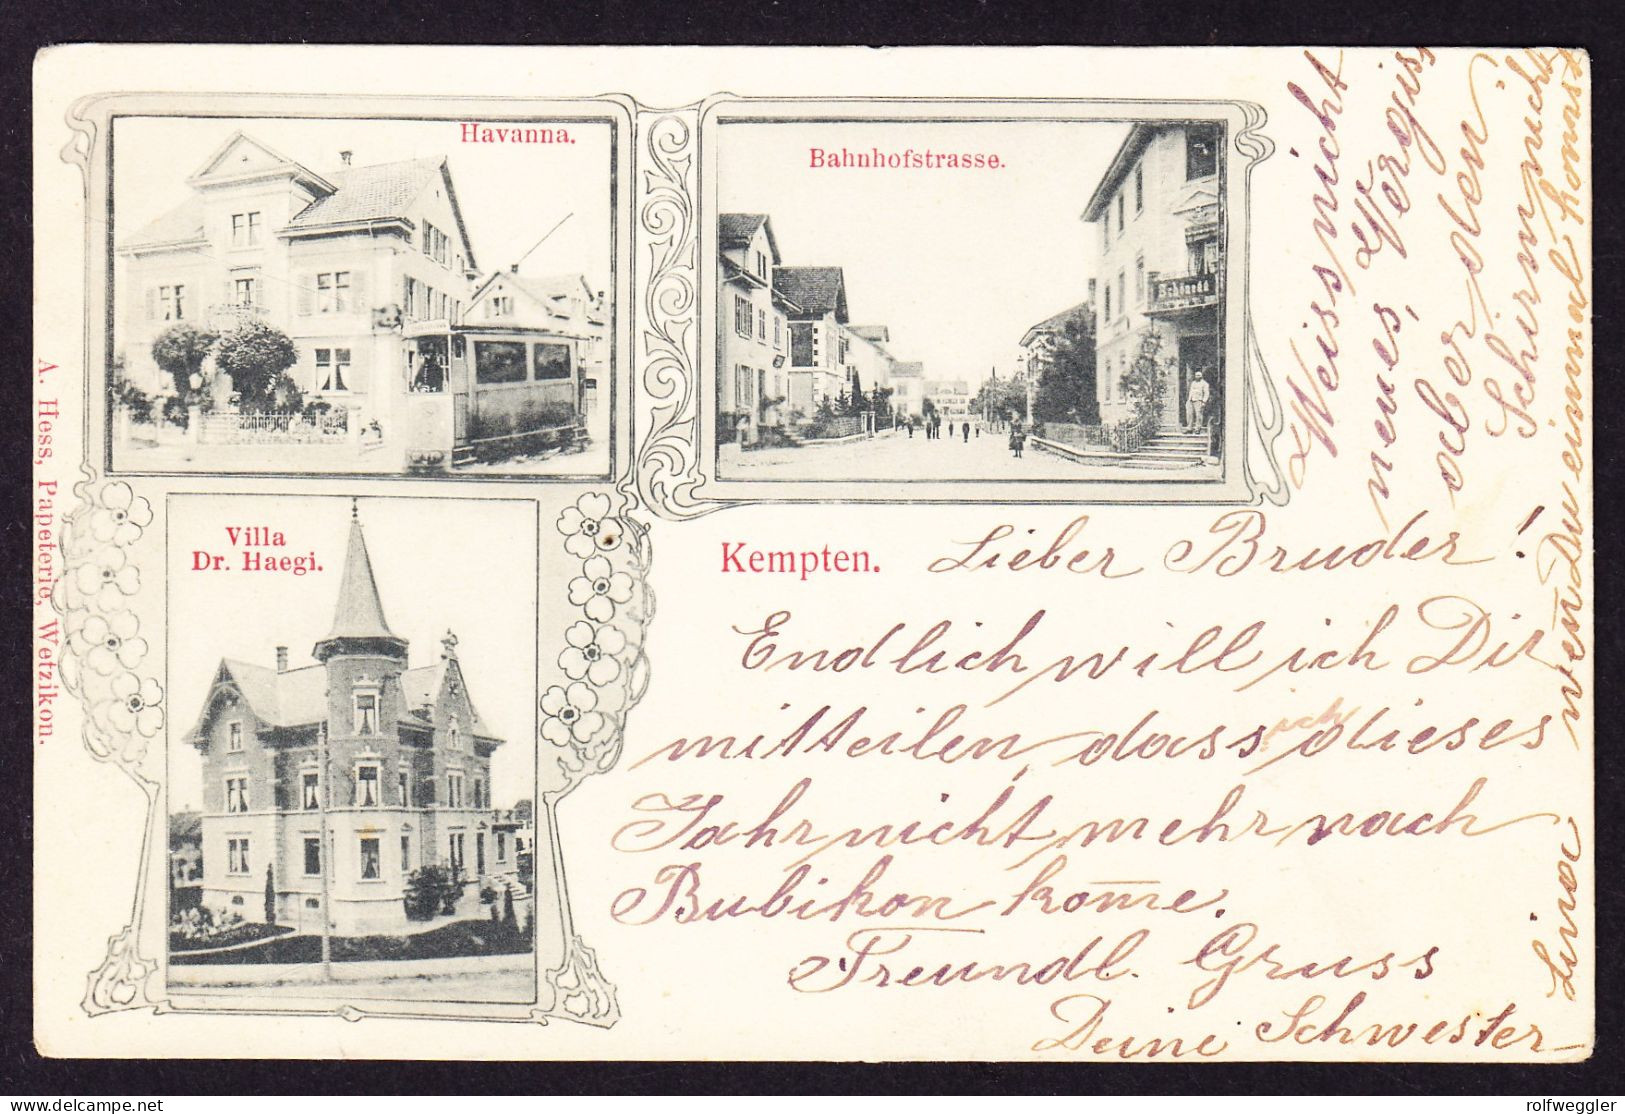 Havanna.
Bahnhofstrasse.
Villa
Dr. Haegi.
A. Hess, Papeterie, Wetzikon.
Kempten.
Lieber Bruder!
Endlich will ich Dir
mitteilen, dass ich dieses
Jahr nicht mehr nach
Bubikon kom̄e.
Freundl. Gruss
Deine Schwester
Lina
Weiss nicht
neues, Vergiss
aber den
Schirm nicht
wen̄ Du einmal komst
delcampe.net
rolfweggler